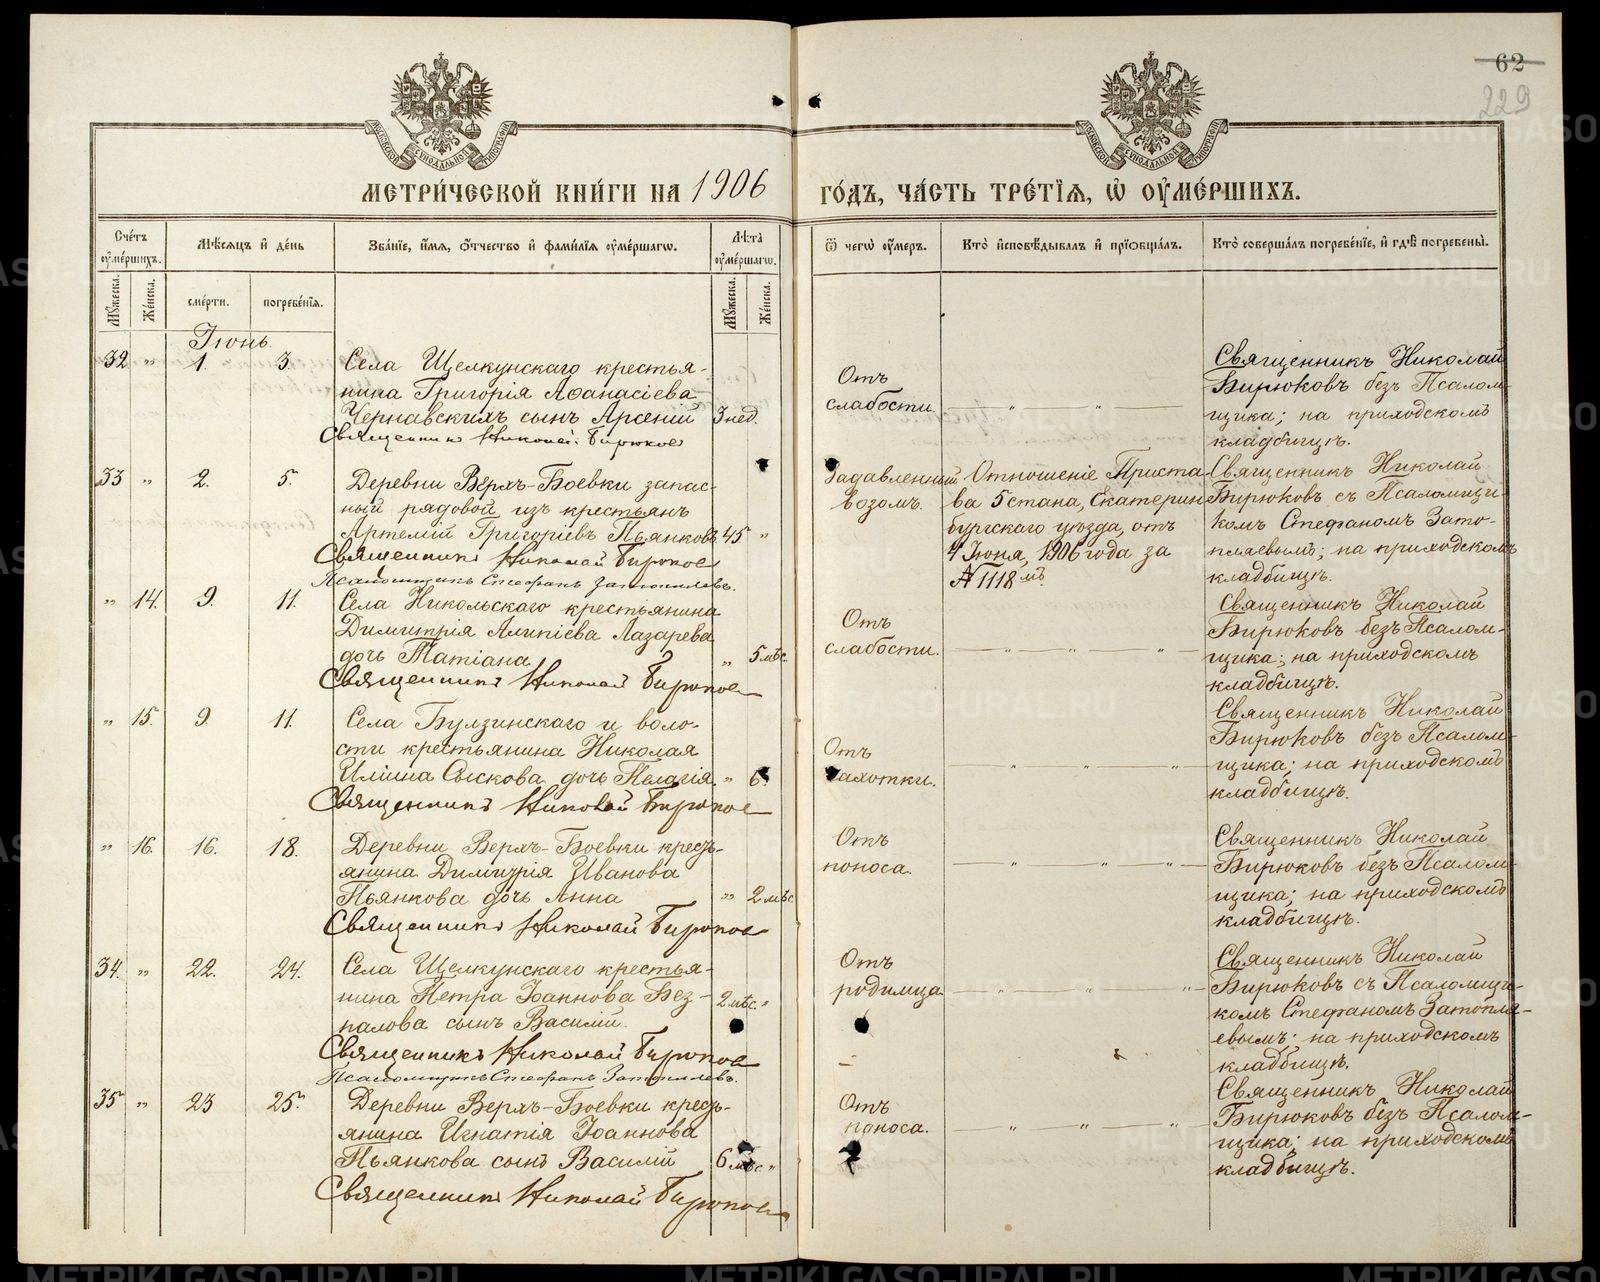 62
229
МЕТРИ́ЧЕСКОЙ КНИ́ГИ НА 1906 ГО́ДЪ, ЧА́СТЬ ТРЕ́ТІѦ, Ѡ҆ ОУ҆МЕ́РШИХЪ.
Сче́тъ оу҆ме́ршихъ.
Мѣ́сяцъ и҆ де́нь
Зва́ніе, и҆́мя, о҆́тчество и҆ фами́лія оу҆ме́ршагѡ.
Лѣ́та оу҆ме́ршагѡ.
Ѿ чегѡ̀ оу҆́меръ.
Кто̀ и҆сповѣ́дывалъ и҆ прїѡбща́лъ.
Кто̀ соверша́лъ погребе́нїе, и҆ гдѣ̀ погребены̀.
Мꙋ́жеска.
Же́нска.
сме́рти.
погребе́нїя.
Мꙋ́жеска.
Же́нска.
Іюнь
32 „ 1 3.
Села Щелкунскаго крестья-
нина Григорія Аѳанасіева
Чернавскихъ сынъ Арсеній 3 нед.
Священникъ Николай Бирюковъ
Отъ
слабости.
Священникъ Николай
Бирюковъ безъ Псалом-
щика; на приходскомъ
кладбищѣ.
33 „ 2. 5.
Деревни Верхъ-Боевки запас-
ный рядовой изъ крестьянъ
Артемій Григоріевъ Пьянковъ 45 „
Священникъ Николай Бирюковъ
Псаломщикъ Стефанъ Затопляевъ.
Задавленный
возомъ.
Отношеніе Приста
ва 5 стана, Екатерин
бургскаго уѣзда, отъ
4 Іюня, 1906 года за
№ 1118 мъ.
Священникъ Николай
Бирюковъ съ Псаломщи-
комъ Стефаномъ Зато-
пляевымъ; на приходскомъ
кладбищѣ.
„ 14. 9. 11.
Села Никольскаго крестьянина
Димитрія Алипіева Лазарева
дочь Татіана „ 5 мѣс.
Священникъ Николай Бирюковъ
Отъ
слабости.
Священникъ Николай
Бирюковъ безъ Псалом-
щика; на приходскомъ
кладбищѣ.
„ 15. 9. 11.
Села Булзинскаго и воло-
сти крестьянина Николая
Иліина Сыскова дочь Пелагія. „ 6.
Священникъ Николай Бирюковъ
Отъ
чахотки.
Священникъ Николай
Бирюковъ безъ Псалом-
щика; на приходскомъ
кладбищѣ.
„ 16. 16. 18.
Деревни Верхъ-Боевки кресть-
янина Димитрія Иванова
Пьянкова дочь Анна „ 2 мѣс.
Священникъ Николай Бирюковъ
Отъ
поноса.
Священникъ Николай
Бирюковъ безъ Псалом-
щика; на приходскомъ
кладбищѣ.
34. „ 22. 24.
Села Щелкунскаго крестья-
нина Петра Іоаннова Без-
палова сынъ Василій. 2 мѣс. „
Священникъ Николай Бирюковъ
Псаломщикъ Стефанъ Затопляевъ.
Отъ
родимца.
Священникъ Николай
Бирюковъ съ Псаломщи-
комъ Стефаномъ Затопля-
евымъ; на приходскомъ
кладбищѣ.
35 „ 23 25.
Деревни Верхъ-Боевки кресть-
янина Игнатія Іоаннова
Пьянкова сынъ Василій 6 мѣс. „
Священникъ Николай Бирюковъ
Отъ
поноса.
Священникъ Николай
Бирюковъ безъ Псалом-
щика; на приходскомъ
кладбищѣ.
METRIKI.GASO-URAL.RU